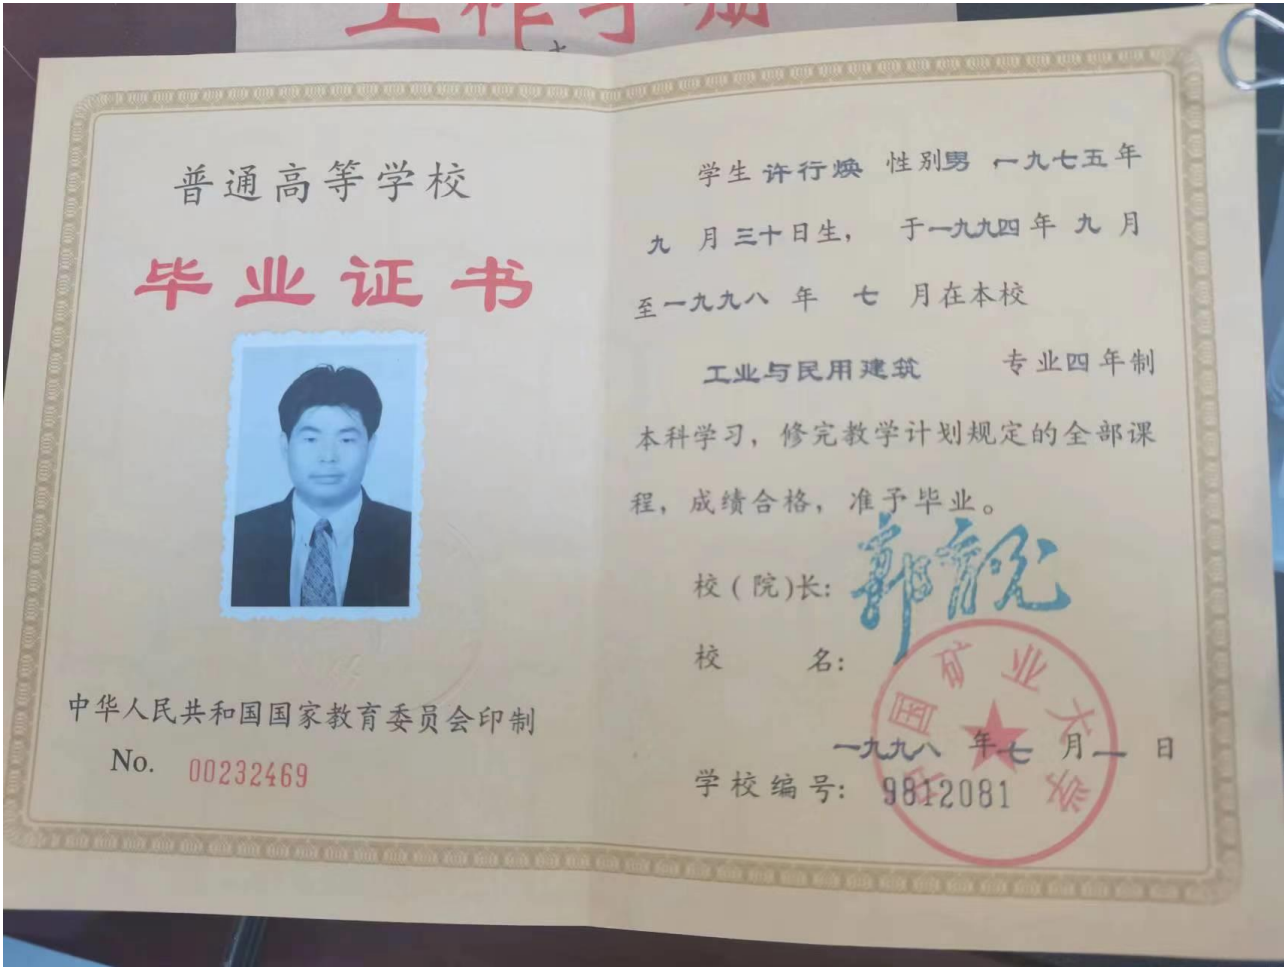 工作手册
普通高等学校
毕业证书
中华人民共和国国家教育委员会印制
No. 00232469
学生 许行焕 性别男 一九七五年
九 月三十日生， 于一九九四年 九 月
至一九九八 年 七 月在本校
工业与民用建筑 专业四年制
本科学习，修完教学计划规定的全部课
程，成绩合格，准予毕业。
校(院)长：
校 名：
中国矿业大学
一九九八 年七 月一 日
学校编号：9812081